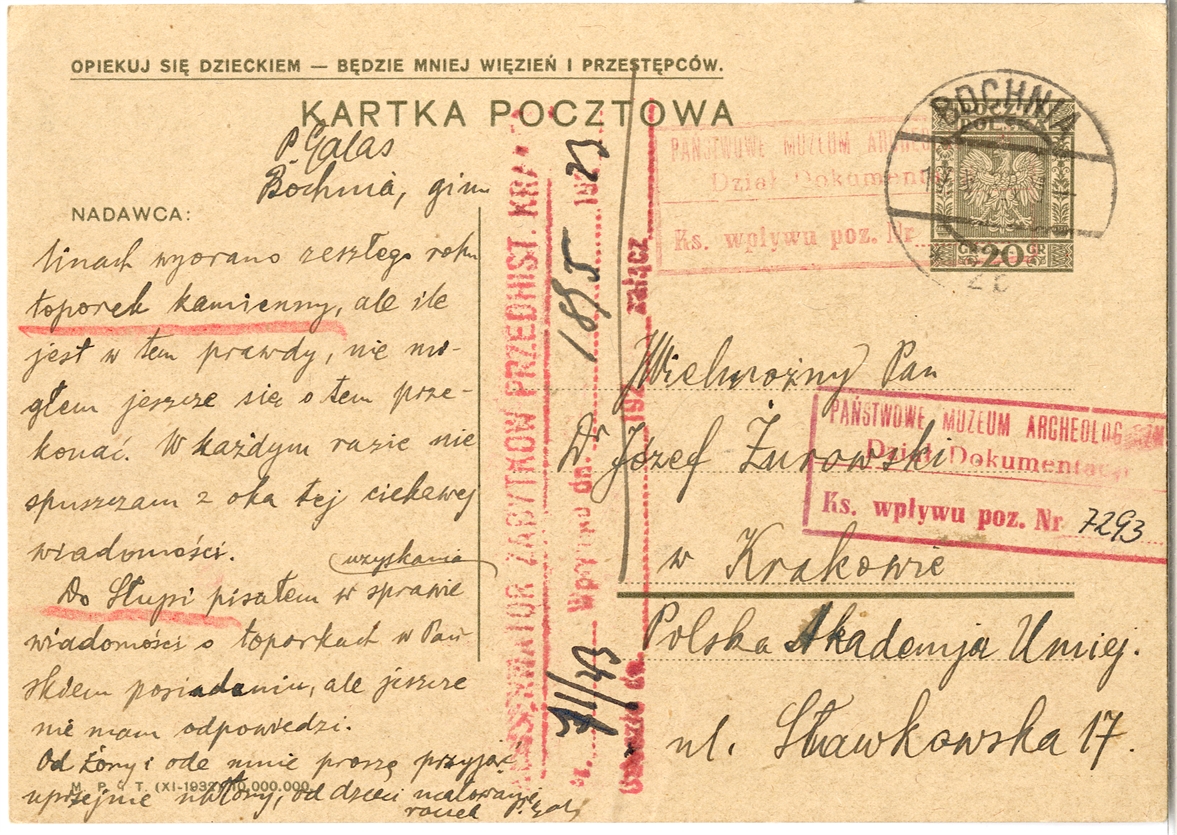 OPIEKUJ SIĘ DZIECKIEM — BĘDZIE MNIEJ WIĘZIEŃ I PRZESTĘPCÓW.
KARTKA POCZTOWA
P. Galas
Bochnia, gim
NADAWCA:
linach wyorano zeszłego roku
toporek kamienny, ale ile
jest w tem prawdy, nie mo-
głem jeszcze się o tem prze-
konać. W każdym razie nie
spuszczam z oka tej ciekawej
wiadomości.
uzyskania
Do Słupi pisałem w sprawie
wiadomości o toporkach w Pań-
skiem posiadaniu, ale jeszcze
nie mam odpowiedzi.
Od żony i ode mnie proszę przyjąć
uprzejme ukłony, od dzieci
M. P. i T. (XI-1932) 10.000.000.
KONSERWATOR ZABYTKÓW PRZEDHIST. KRA
Wpłynęło dn. 18/5 1923
L. 71/43 załącz
192
BOCHNIA
POCZTA
POLSKA
GR 20 GR
PAŃSTWOWE MUZEUM ARCHEOLO
Dział Dokumenta
Ks. wpływu poz. Nr
Wielmożny Pan
Dr Józef Żurowski
w Krakowie
Polska Akademja Umiej.
ul. Sławkowska 17.
PAŃSTWOWE MUZEUM ARCHEOLOG
Dział Dokumentacji
Ks. wpływu poz. Nr 7293